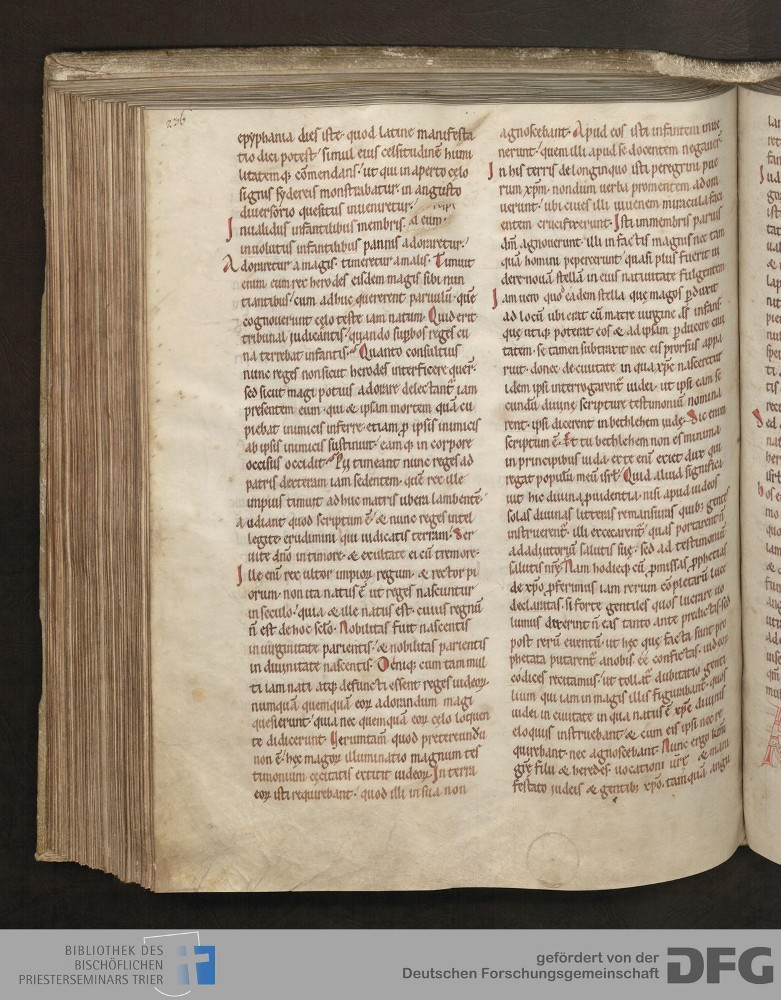 236
epyphania dies iste. quod latine manifesta
tio dici potest / simul eius celsitudinē humi
litatemq; cōmendans / ut qui in aperto cęlo
signis sydereis monstrabatur. in angusto
diuersorio quesitus inueniretur /
Inualidus infantilibus membris. a cum.
inuolutus infantilibus pannis adoraretur /
Adoraretur a magis. timeretur a malis. Timuit
enim eum rex herodes eisdem magis sibi nun
tiantibus / cum adhuc quererent paruulū. quē
cognouerunt cęlo teste iam natum. Quid erit
tribunal iudicantis / quando suꝑbos reges cu
na terrebat infantis. Quanto consultius
nunc reges non sicut herodes interficere querūt
sed sicut magi potius adorare delectant̄ iam
presentem eum. qui & ipsam mortem quā cu
piebat inimicis inferre. etiam ꝓ ipsis inimicis
ab ipsis inimicis sustinuit. eamq; in corpore
occisus occidit. Pij timeant nunc reges ad
patris dexteram iam sedentem. quē rex ille
impius timuit adhuc matris ubera lambentē.
audiant quod scriptum ē / & nunc reges intel
legite erudimini qui iudicatis terram. Ser
uite dn̄o in timore. & exultate ei cū tremore.
Ille eni rex ultor impiorꝫ regum. & rector pi
orum. non ita natus ē ut reges nascuntur
in seculo. quia & ille natus est. cuius regnū
n̄ est de hoc sclo. Nobilitas fuit nascentis
in uirginitate parientis. & nobilitas parientis
in diuinitate nascentis. Deniq; cum tam mul
ti iam nati atq; defuncti essent reges iudeorꝫ.
numquā quemquā eorꝫ adorandum magi
quesierunt. quia nec quemquā eorꝫ cęlo loquen
te didicerunt. Ueruntam̄ quod pretereundū
non ē. hęc magorꝫ illuminatio magnum tes
timonium cęcitatis extitit iudeorꝫ. In terra
eorꝫ isti requirebant. quod illi in sua non
agnoscebant. Apud eos isti infantem inue
nerunt. quem illi apud se docentem negauer̄.
In his terris de longinquo isti peregrini pue
rum xp̄m. nondum uerba promentem adora
uerunt. ubi ciues illi iuuenem miracula faci
entem crucifixerunt. Isti in membris paruis
dm̄ agnouerunt. illi in factis magnis nec tam
quā homini pepercerunt. quasi plus fuerit ui
dere nouā stellā in eius natiuitate fulgentem
Iam uero quod eadem stella que magos ꝑduxit
ad locū ubi erat cū matre uirgine ds̄ infans
quę utiq; poterat eos & ad ipsam ꝑducere ciui
tatem. se tamen subtraxit nec eis prorsus appa
ruit. donec de ciuitate in qua xp̄c nasceretur
idem ipsi interrogarent iudei. ut ipsi eam se
cundū diuinę scripturę testimoniū nomina
rent. ipsi dicerent in bethlehem iudę. Sic enim
scriptum ē. Et tu bethlehem non es minima
in principibus iuda. ex te eni exiet dux qui
regat populū meū isrl. Quid aliud significa
uit hic diuina ꝓuidentia. nisi apud iudeos
solas diuinas litteras remansuras. quib; gentes
instruerent̄. illi excecarent̄. quas portarent n̄
ad adiutoriū salutis suę. sed ad testimoniū
salutis nrę. Nam hodieq; cū ꝓmissas ꝓphetias
de xp̄o ꝓferimus iam rerum cōpletarū luce
declaratas. si forte gentiles quos lucrare uo
lumus dixerunt n̄ eas tanto ante predictas. sed
post rerū euentū. ut hęc quę facta sunt pro
phetata putarent̄ a nobis eē confictas. iudeorꝫ
codices recitamus. ut tollat̄ dubitatio genti
lium qui iam in magis illis figurabant̄. quos
iudei in ciuitate in qua natus ē xp̄c diuinis
eloquiis instruebant. & cum eis ipsi nec re
quirebant. nec agnoscebant. Nunc ergo kmi
gr̄ę filii & heredes. uocationi ur̄ę & mani
festato iudeis & gentib; xp̄o. tamquā angu
BIBLIOTHEK DES
BISCHÖFLICHEN
PRIESTERSEMINARS TRIER
gefördert von der
Deutschen Forschungsgemeinschaft
DFG